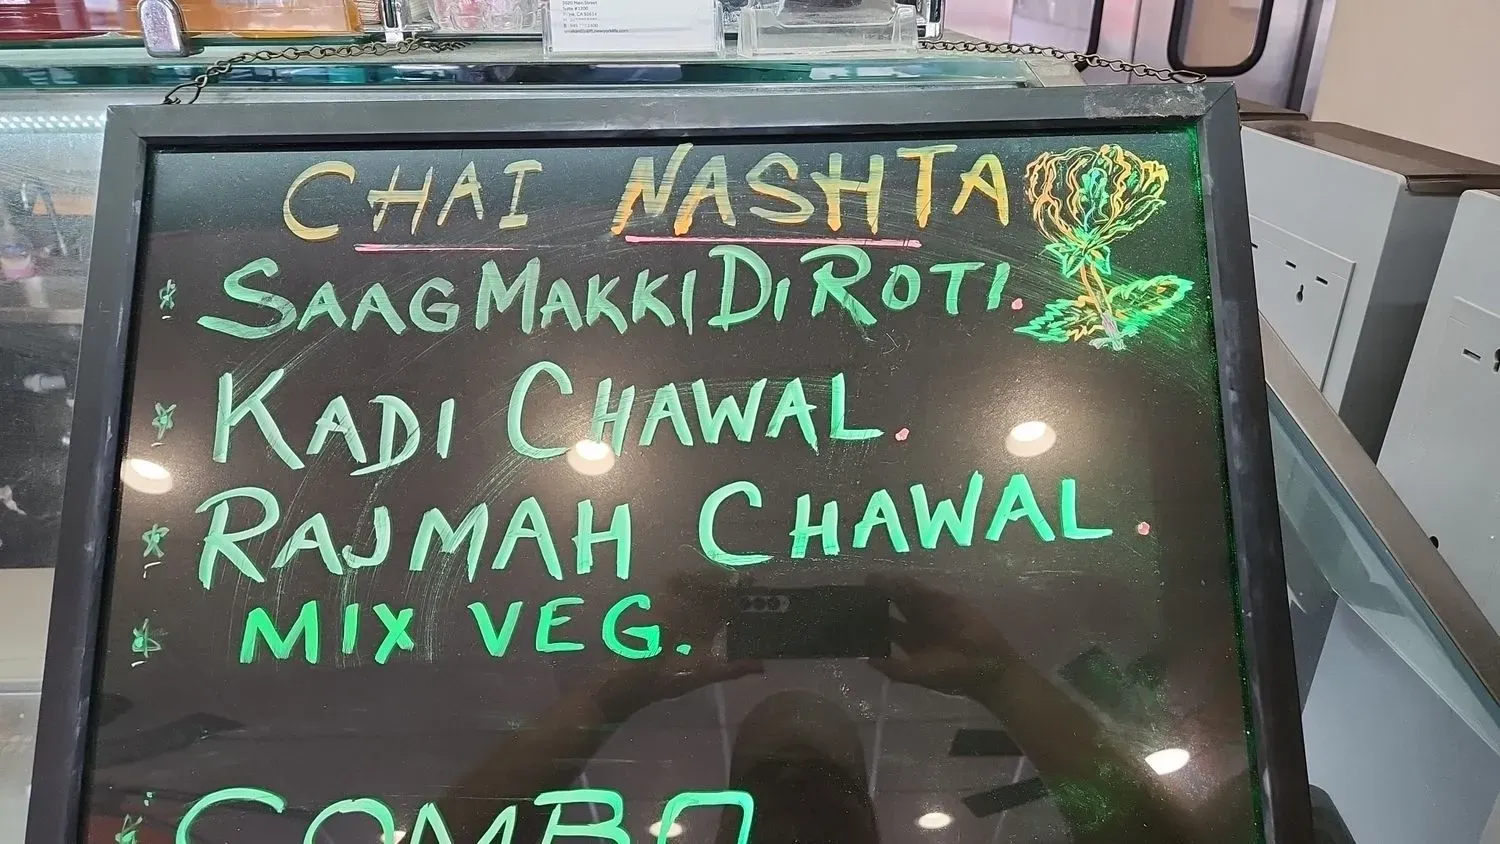 2020 Main Street
CHAI NASHTA
SAAG MAKKI DI ROTI.
KADI CHAWAL.
RAJMAH CHAWAL.
MIX VEG.
COMBO